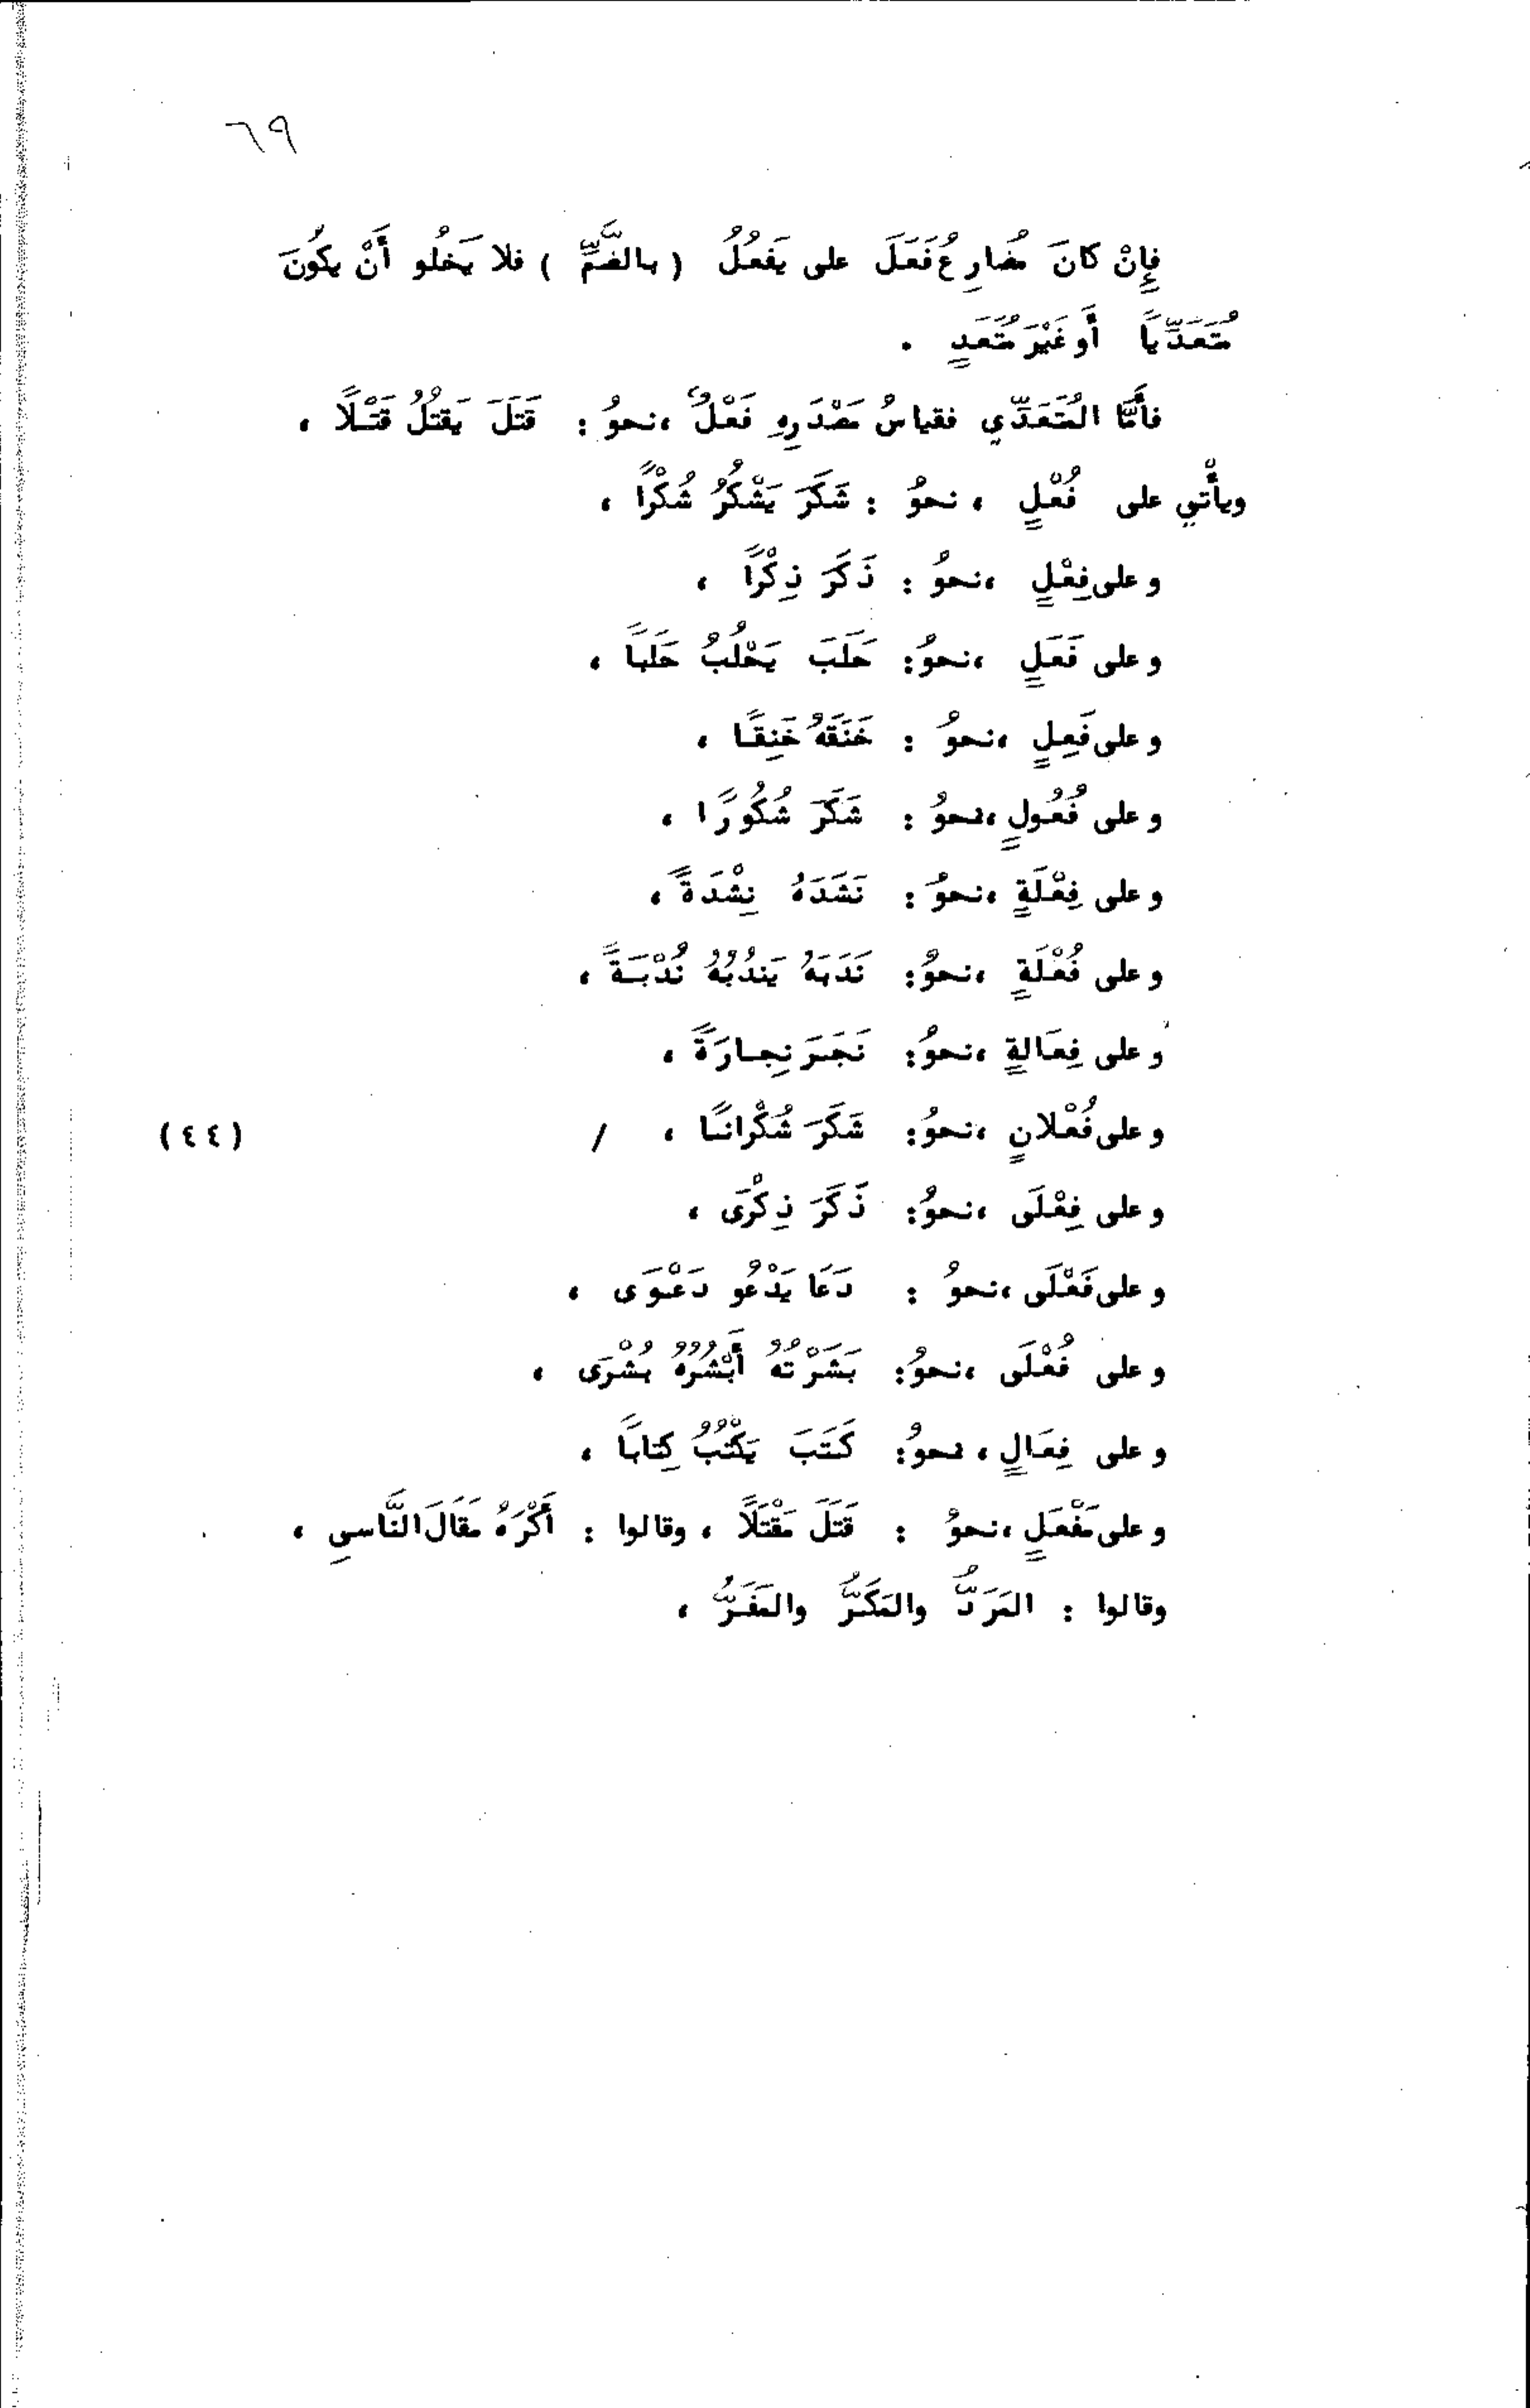 ٦٩
فَإِنْ كانَ مُضارِعُ فَعَلَ على يَفْعُلُ ( بالضَّمِّ ) فلا يَخلُو أَنْ يكُونَ
مُتَعَدِّياً أَو غَيْرَ مُتَعَدٍ .
فأَمَّا المُتَعَدِّي فقياسُ مَصْدَرِهِ فَعْلٌ ،نحوُ : قَتَلَ يَقتُلُ قَتْـلًا ،
ويأْتي على فُعْلٍ ، نحوُ : شَكَرَ يَشْكُرُ شُكْرًا ،
وعلى فِعْلٍ ،نحوُ : ذَكَرَ ذِكْرًا ،
وعلى فَعَلٍ ،نحوُ: حَلَبَ يَحْلُبُ حَلَباً ،
وعلى فَعِلٍ ،نحوُ : خَنَقَهُ خَنِقًـا ،
وعلى فُعُولٍ ،نحوُ : شَكَرَ شُكُورًا ،
وعلى فِعْلَةٍ ،نحوُ : نَشَدَهُ نِشْدَةً ،
وعلى فُعْلَةٍ ،نحوُ: نَدَبَهُ يَندُبُهُ نُدْبَـةً ،
وعلى فِعَالةٍ ،نحوُ: نَجَـرَ نِجـارَةً ،
وعلى فُعْلانٍ ،نحوُ: شَكَرَ شُكْرانـًا ، / (٤٤)
وعلى فِعْلَى ،نحوُ: ذَكَرَ ذِكْرَى ،
وعلى فَعْلَى ،نحوُ : دَعَا يَدْعُو دَعْـوَى ،
وعلى فُعْلَى ،نحوُ: بَشَرْتُهُ أَبْشُرُهُ بُشْرَى ،
وعلى فِعَالٍ ، نحوُ: كَتَبَ يَكْتُبُ كِتابًا ،
وعلى مَفْعَلٍ ،نحوُ : قَتَلَ مَقْتَلًا ، وقالوا : أَكْرَهُ مَقَالَ النَّاسِ ،
وقالوا : المَرَدُّ والمَكَـرُّ والمَفَـرُّ ،